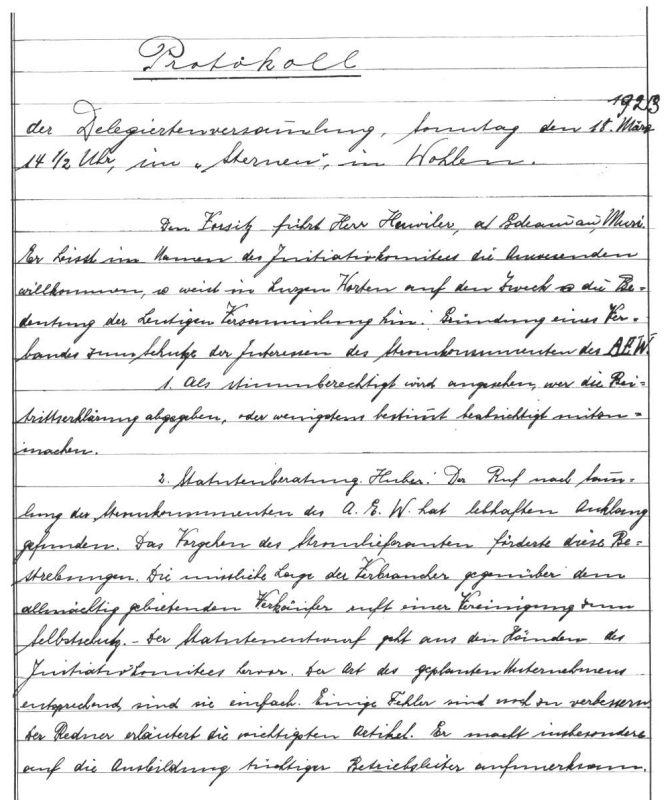 Protokoll
1923
der Delegiertenversam̄lung, Sonntag den 18. März
14 1/2 Uhr, im "Sternen", in Wohlen.
Den Vorsitz führt Herr Heuwiler, Muri.
Er heisst im Namen des Initiativkomitees die Anwesenden
willkommen, weist in kurzen Worten auf den Zweck & die Be=
deutung der heutigen Versammlung hin: Gründung eines Ver=
bandes zum Schutze der Interessen des Stromkonsumenten des A.E.W.
1. Als stimmberechtigt wird angesehen, wer die Bei=
trittserklärung abgegeben, oder wenigstens bestim̄t beabsichtigt mitzu=
machen.
2. Statutenberatung. Huber: Der Ruf nach Sam̄=
lung der Stromkonsumenten des A. E. W. hat lebhaften Anklang
gefunden. Das Vorgehen des Stromlieferanten förderte diese Be=
strebungen. Die missliche Lage der Verbraucher gegenüber dem
allmächtig gebietenden Verkäufer ruft einer Vereinigung zum
Selbstschutz. - Der Statutenentwurf geht aus den Händen des
Initiativkomitees hervor. Der Art des geplanten Unternehmens
entsprechend, sind sie einfach. Einige Fehler sind noch zu verbessern.
Der Redner erläutert die wichtigsten Artikel. Er macht insbesondere
auf die Ausbildung tüchtiger Betriebsleiter aufmerksam.